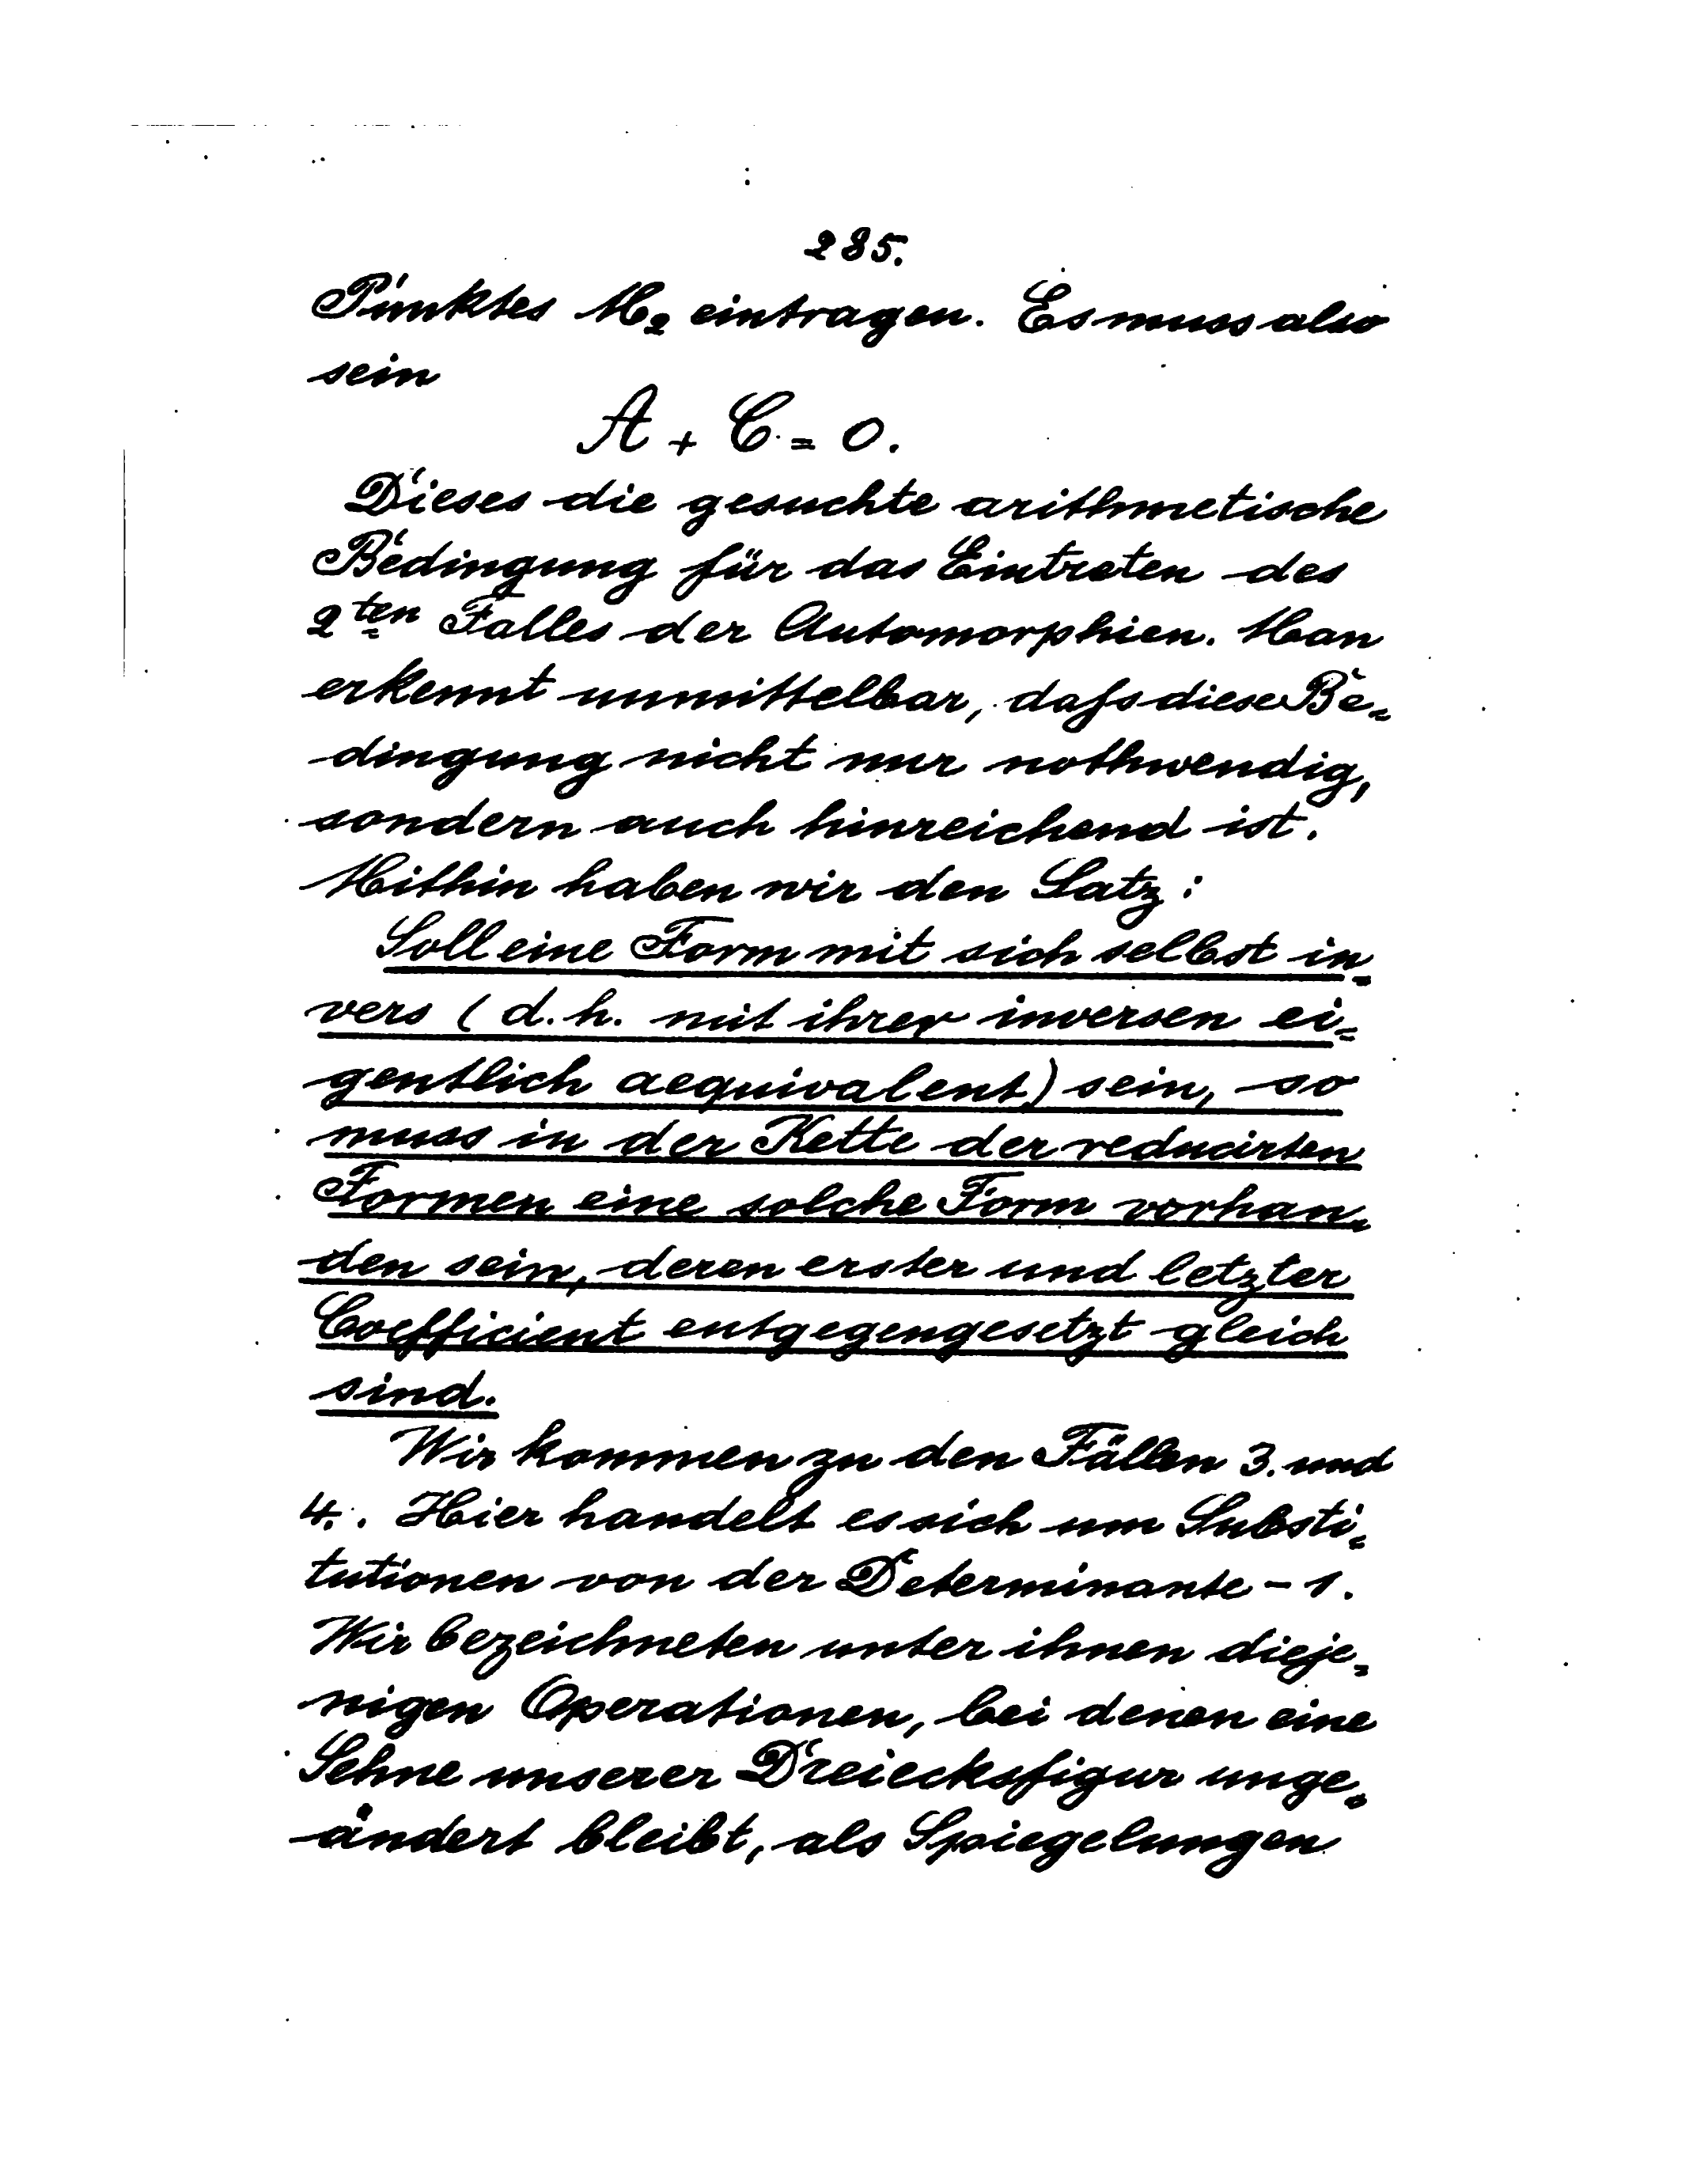 285.
Punktes M₂ eintragen. Es muss also
sein
A + C = 0.
Dieses die gesuchte arithmetische
Bedingung für das Eintreten des
2ten Falles der Automorphien. Man
erkennt unmittelbar, dafs diese Be=
dingung nicht nur nothwendig,
sondern auch hinreichend ist.
Mithin haben wir den Satz:
Soll eine Form mit sich selbst in=
vers (d.h. mit ihrer inversen ei=
gentlich aequivalent) sein, so
muss in der Kette der reducirten
Formen eine solche Form vorhan=
den sein, deren erster und letzter
Coefficient entgegengesetzt gleich
sind.
Wir kommen zu den Fällen 3. und
4.. Hier handelt es sich um Substi=
tutionen von der Determinante - 1.
Wir bezeichneten unter ihnen dieje=
nigen Operationen, bei denen eine
Sehne unserer Dreiecksfigur unge=
ändert bleibt, als Spiegelungen